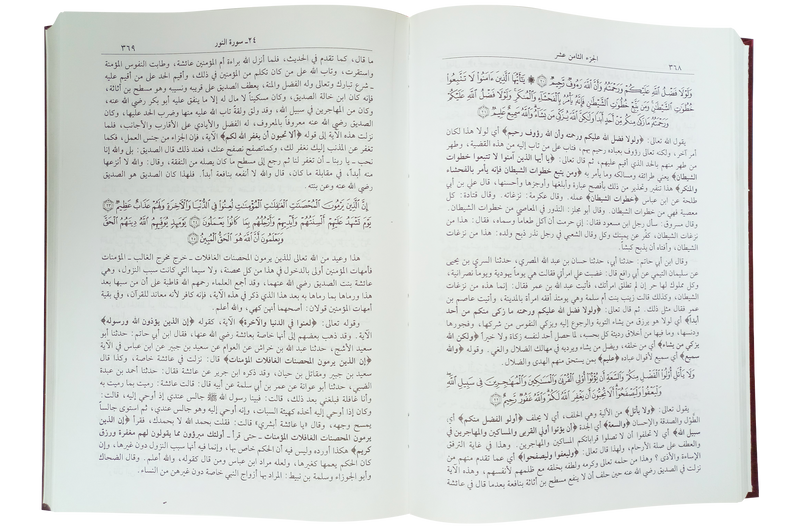 الجزء الثامن عشر
٣٦٨
وَلَوْلَا فَضْلُ اللَّهِ عَلَيْكُمْ وَرَحْمَتُهُ وَأَنَّ اللَّهَ رَءُوفٌ رَحِيمٌ ﴿٢٠﴾ يَا أَيُّهَا الَّذِينَ ءَامَنُوا لَا تَتَّبِعُوا
خُطُوَاتِ الشَّيْطَانِ وَمَن يَتَّبِعْ خُطُوَاتِ الشَّيْطَانِ فَإِنَّهُ يَأْمُرُ بِالْفَحْشَاءِ وَالْمُنكَرِ وَلَوْلَا فَضْلُ اللَّهِ عَلَيْكُمْ
وَرَحْمَتُهُ مَا زَكَى مِنكُم مِّنْ أَحَدٍ أَبَدًا وَلَٰكِنَّ اللَّهَ يُزَكِّي مَن يَشَاءُ وَاللَّهُ سَمِيعٌ عَلِيمٌ ﴿٢١﴾
يقول الله تعالى: ﴿ولولا فضل الله عليكم ورحمته وأن الله رؤوف رحيم﴾ أي لولا هذا لكان
أمر آخر، ولكنه تعالى رؤوف بعباده رحيم بهم، فتاب على من تاب إليه من هذه القضية، وطهر
من طهر منهم بالحد الذي أقيم عليهم، ثم قال تعالى: ﴿يا أيها الذين آمنوا لا تتبعوا خطوات
الشيطان﴾ يعني طرائقه ومسالكه وما يأمر به ﴿ومن يتبع خطوات الشيطان فإنه يأمر بالفحشاء
والمنكر﴾ هذا تنفير وتحذير من ذلك بأفصح عبارة وأبلغها وأوجزها وأحسنها، قال علي بن أبي
طلحة عن ابن عباس ﴿خطوات الشيطان﴾ عمله. وقال عكرمة: نزغاته. وقال قتادة: كل
معصية فهي من خطوات الشيطان. وقال أبو مجلز: النذور في المعاصي من خطوات الشيطان.
وقال مسروق: سأل رجل ابن مسعود فقال: إني حرمت أن آكل طعاماً وسماه، فقال: هذا من
نزغات الشيطان، كفّر عن يمينك وكل وقال الشعبي في رجل نذر ذبح ولده: هذا من نزغات
الشيطان، وأفتاه أن يذبح كبشاً.
وقال ابن أبي حاتم: حدثنا أبي، حدثنا حسان بن عبد الله المصري، حدثنا السري بن يحيى
عن سليمان التيمي عن أبي رافع قال: غضبت علي امرأتي فقالت هي يوماً يهودية ويوماً نصرانية،
وكل مملوك لها حر إن لم تطلق امرأتك، فأتيت عبد الله بن عمر فقال: إنما هذه من نزغات
الشيطان، وكذلك قالت زينب بنت أم سلمة وهي يومئذ أفقه امرأة بالمدينة، وأتيت عاصم بن
عمر فقال مثل ذلك. ثم قال تعالى: ﴿ولولا فضل الله عليكم ورحمته ما زكى منكم من أحد
أبداً﴾ أي لولا هو يرزق من يشاء التوبة والرجوع إليه ويزكي النفوس من شركها، وفجورها
ودنسها، وما فيها من أخلاق رديئة كل بحسبه، لما حصل أحد لنفسه زكاة ولا خيراً ﴿ولكن الله
يزكي من يشاء﴾ أي من خلقه، ويضل من يشاء ويرديه في مهالك الضلال والغي. وقوله ﴿والله
سميع﴾ أي سميع لأقوال عباده ﴿عليم﴾ بمن يستحق منهم الهدى والضلال.
وَلَا يَأْتَلِ أُولُوا الْفَضْلِ مِنكُمْ وَالسَّعَةِ أَن يُؤْتُوا أُولِي الْقُرْبَىٰ وَالْمَسَاكِينَ وَالْمُهَاجِرِينَ فِي سَبِيلِ اللَّهِ
وَلْيَعْفُوا وَلْيَصْفَحُوا أَلَا تُحِبُّونَ أَن يَغْفِرَ اللَّهُ لَكُمْ وَاللَّهُ غَفُورٌ رَّحِيمٌ ﴿٢٢﴾
يقول تعالى: ﴿ولا يأتل﴾ من الألية وهي الحلف، أي لا يحلف ﴿أولو الفضل منكم﴾ أي
الطول والصدقة والإحسان ﴿والسعة﴾ أي الجدة ﴿أن يؤتوا أولي القربى والمساكين والمهاجرين في
سبيل الله﴾ أي لا تحلفوا أن لا تصلوا قراباتكم المساكين والمهاجرين. وهذا في غاية الترفق
والعطف على صلة الأرحام، ولهذا قال تعالى: ﴿وليعفوا وليصفحوا﴾ أي عما تقدم منهم من
الإساءة والأذى؟ وهذا من حلمه تعالى وكرمه ولطفه بخلقه مع ظلمهم لأنفسهم، وهذه الآية
نزلت في الصديق رضي الله عنه حين حلف أن لا ينفع مسطح بن أثاثة بنافعة بعدما قال في عائشة
٢٤ـ سورة النور
٣٦٩
ما قال، كما تقدم في الحديث، فلما أنزل الله براءة أم المؤمنين عائشة، وطابت النفوس المؤمنة
واستقرت، وتاب الله على من كان تكلم من المؤمنين في ذلك، وأقيم الحد على من أقيم عليه
ـ شرع تبارك وتعالى وله الفضل والمنة، يعطف الصديق على قريبه ونسيبه وهو مسطح بن أثاثة،
فإنه كان ابن خالة الصديق، وكان مسكيناً لا مال له إلا ما ينفق عليه أبو بكر رضي الله عنه،
وكان من المهاجرين في سبيل الله، وقد ولق ولقة تاب الله عليه منها وضرب الحد عليها، وكان
الصديق رضي الله عنه معروفاً بالمعروف، له الفضل والأيادي على الأقارب والأجانب، فلما
نزلت هذه الآية إلى قوله ﴿ألا تحبون أن يغفر الله لكم﴾ الآية، فإن الجزاء من جنس العمل، فكما
تغفر عن المذنب إليك نغفر لك، وكما تصفح نصفح عنك، فعند ذلك قال الصديق: بلى والله إنا
نحب ـ يا ربنا ـ أن تغفر لنا ثم رجع إلى مسطح ما كان يصله من النفقة، وقال: والله لا أنزعها
منه أبداً، في مقابلة ما كان، قال والله لا أنفعه بنافعة أبداً. فلهذا كان الصديق هو الصديق
رضي الله عنه وعن بنته.
إِنَّ الَّذِينَ يَرْمُونَ الْمُحْصَنَاتِ الْغَافِلَاتِ الْمُؤْمِنَاتِ لُعِنُوا فِي الدُّنْيَا وَالْآخِرَةِ وَلَهُمْ عَذَابٌ عَظِيمٌ ﴿٢٣﴾
يَوْمَ تَشْهَدُ عَلَيْهِمْ أَلْسِنَتُهُمْ وَأَيْدِيهِمْ وَأَرْجُلُهُم بِمَا كَانُوا يَعْمَلُونَ ﴿٢٤﴾ يَوْمَئِذٍ يُوَفِّيهِمُ اللَّهُ دِينَهُمُ الْحَقَّ
وَيَعْلَمُونَ أَنَّ اللَّهَ هُوَ الْحَقُّ الْمُبِينُ ﴿٢٥﴾
هذا وعيد من الله تعالى للذين يرمون المحصنات الغافلات ـ خرج مخرج الغالب ـ المؤمنات
فأمهات المؤمنين أولى بالدخول في هذا من كل محصنة، ولا سيما التي كانت سبب النزول، وهي
عائشة بنت الصديق رضي الله عنهما، وقد أجمع العلماء رحمهم الله قاطبة على أن من سبها بعد
هذا ورماها بما رماها به بعد هذا الذي ذكر في هذه الآية، فإنه كافر لأنه معاند للقرآن، وفي بقية
أمهات المؤمنين قولان: أصحهما أنهن كهي، والله أعلم.
وقوله تعالى: ﴿لعنوا في الدنيا والآخرة﴾ الآية، كقوله ﴿إن الذين يؤذون الله ورسوله﴾
الآية. وقد ذهب بعضهم إلى أنها خاصة بعائشة رضي الله عنها، فقال ابن أبي حاتم: حدثنا أبو
سعيد الأشج، حدثنا عبد الله بن خراش عن العوام عن سعيد بن جبير عن ابن عباس في الآية
﴿إن الذين يرمون المحصنات الغافلات المؤمنات﴾ قال: نزلت في عائشة خاصة، وكذا قال
سعيد بن جبير ومقاتل بن حيان، وقد ذكره ابن جرير عن عائشة فقال: حدثنا أحمد بن عبدة
الضبي، حدثنا أبو عوانة عن عمر بن أبي سلمة عن أبيه قال: قالت عائشة: رميت بما رميت به
وأنا غافلة فبلغني بعد ذلك، قالت: فبينا رسول الله ﷺ جالس عندي إذ أوحي إليه، قالت:
وكان إذا أوحي إليه أخذه كهيئة السبات، وإنه أوحي إليه وهو جالس عندي، ثم استوى جالساً
يمسح وجهه، وقال «يا عائشة أبشري» قالت: فقلت بحمد الله لا بحمدك، فقرأ ﴿إن الذين
يرمون المحصنات الغافلات المؤمنات ـ حتى قرأ ـ أولئك مبرؤون مما يقولون لهم مغفرة ورزق
كريم﴾ هكذا أورده وليس فيه أن الحكم خاص بها، وإنما فيه أنها سبب النزول دون غيرها، وإن
كان الحكم يعمها كغيرها، ولعله مراد ابن عباس ومن قال كقوله، والله أعلم. وقال الضحاك
وأبو الجوزاء وسلمة بن نبيط: المراد بها أزواج النبي خاصة دون غيرهن من النساء.